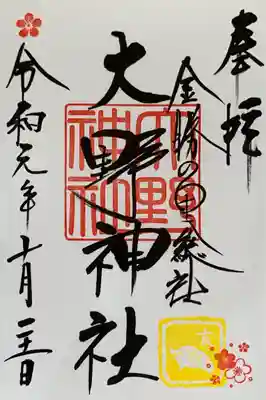 奉拝
金勝の里総社
大野神社
大野神社
令和元年十月